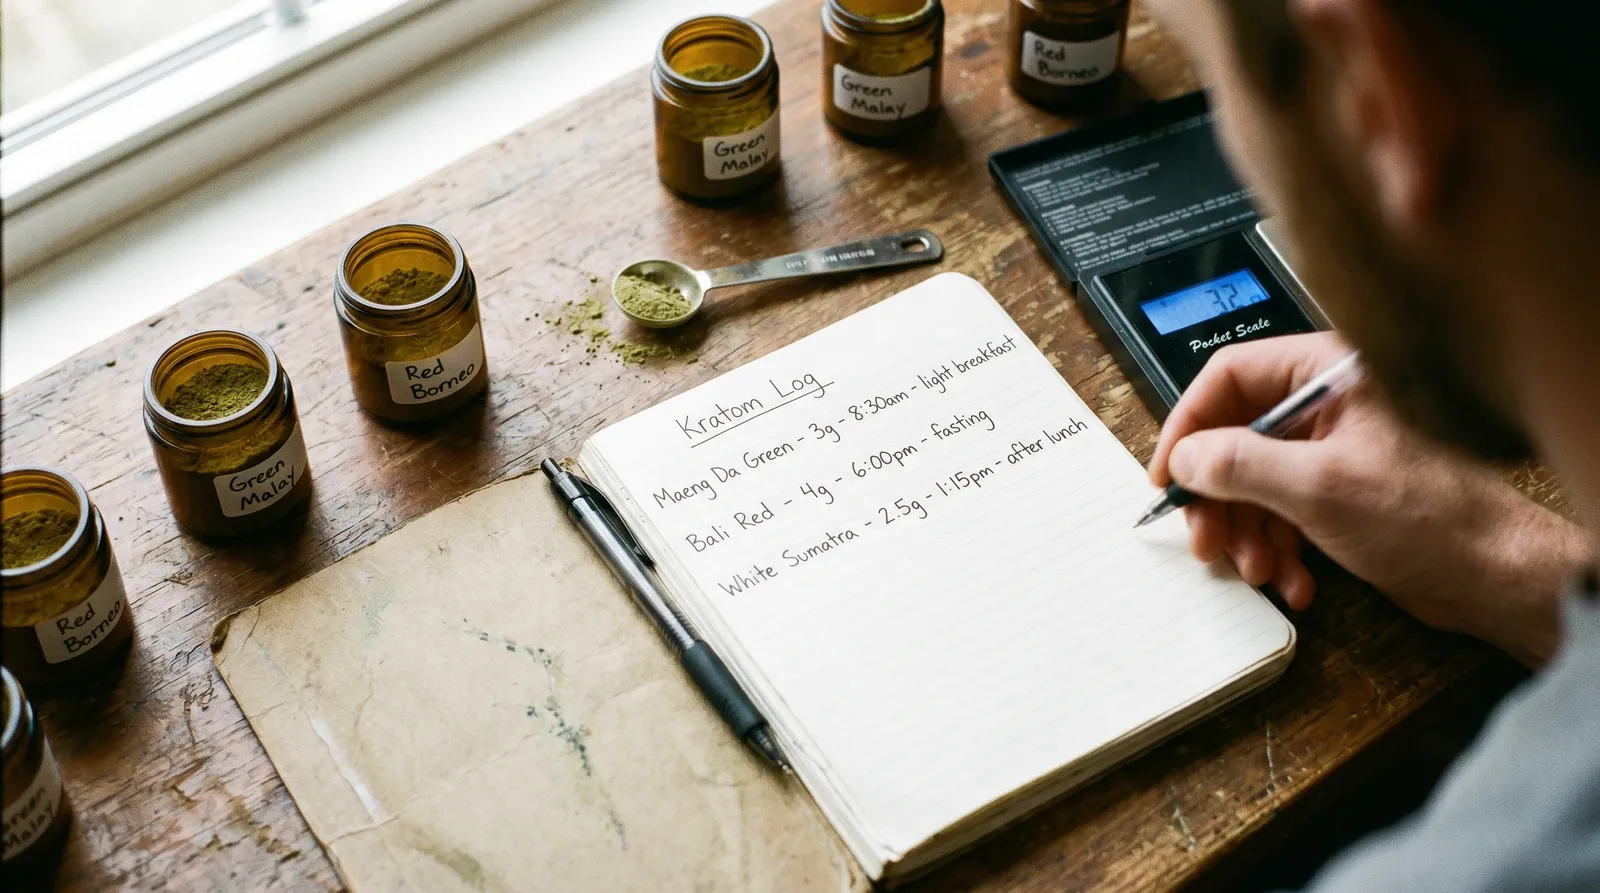 Green
Malay
Red
Borneo
Green
Malay
Red
Borneo
Green
Malay
Red
Borneo
Green
Malay
32
Pocket Scale
Kratom Log
Maeng Da Green - 3g - 8:30am - light breakfast
Bali Red - 4g - 6:00pm - fasting
White Sumatra - 2.5g - 1:15pm - after lunch